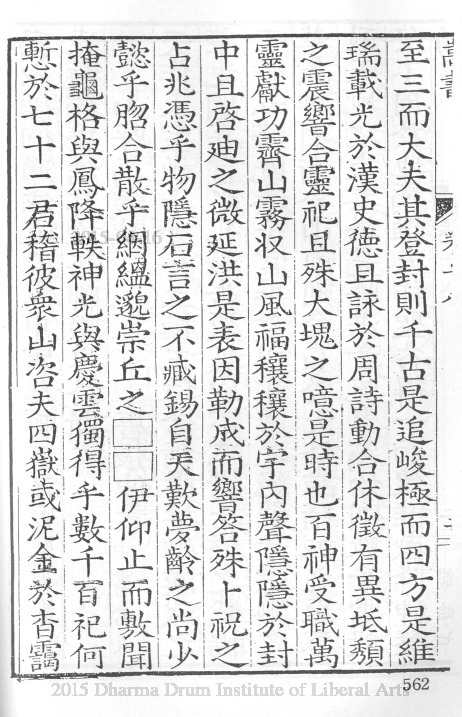 至三而大夫其登封則千古是追峻極而四方是維
瑞載光於漢史德且詠於周詩動合休徵有異坻頹
之震響合靈祀且殊大塊之噫是時也百神受職萬
靈獻功霽山霧収山風福穰穰於宇內聲隱隱於封
中且啓廸之微延洪是表因勒成而響答殊卜祝之
占兆憑乎物隱石言之不臧錫自天歎夢齡之尚少
懿乎脗合散乎網緼邈崇丘之□□伊仰止而敷聞
掩龜格與鳳降軼神光與慶雲獨得乎數千百祀何
慙於七十二君稽彼衆山咨夫四嶽或泥金於杳靄
562
2015 Dharma Drum Institute of Liberal Arts